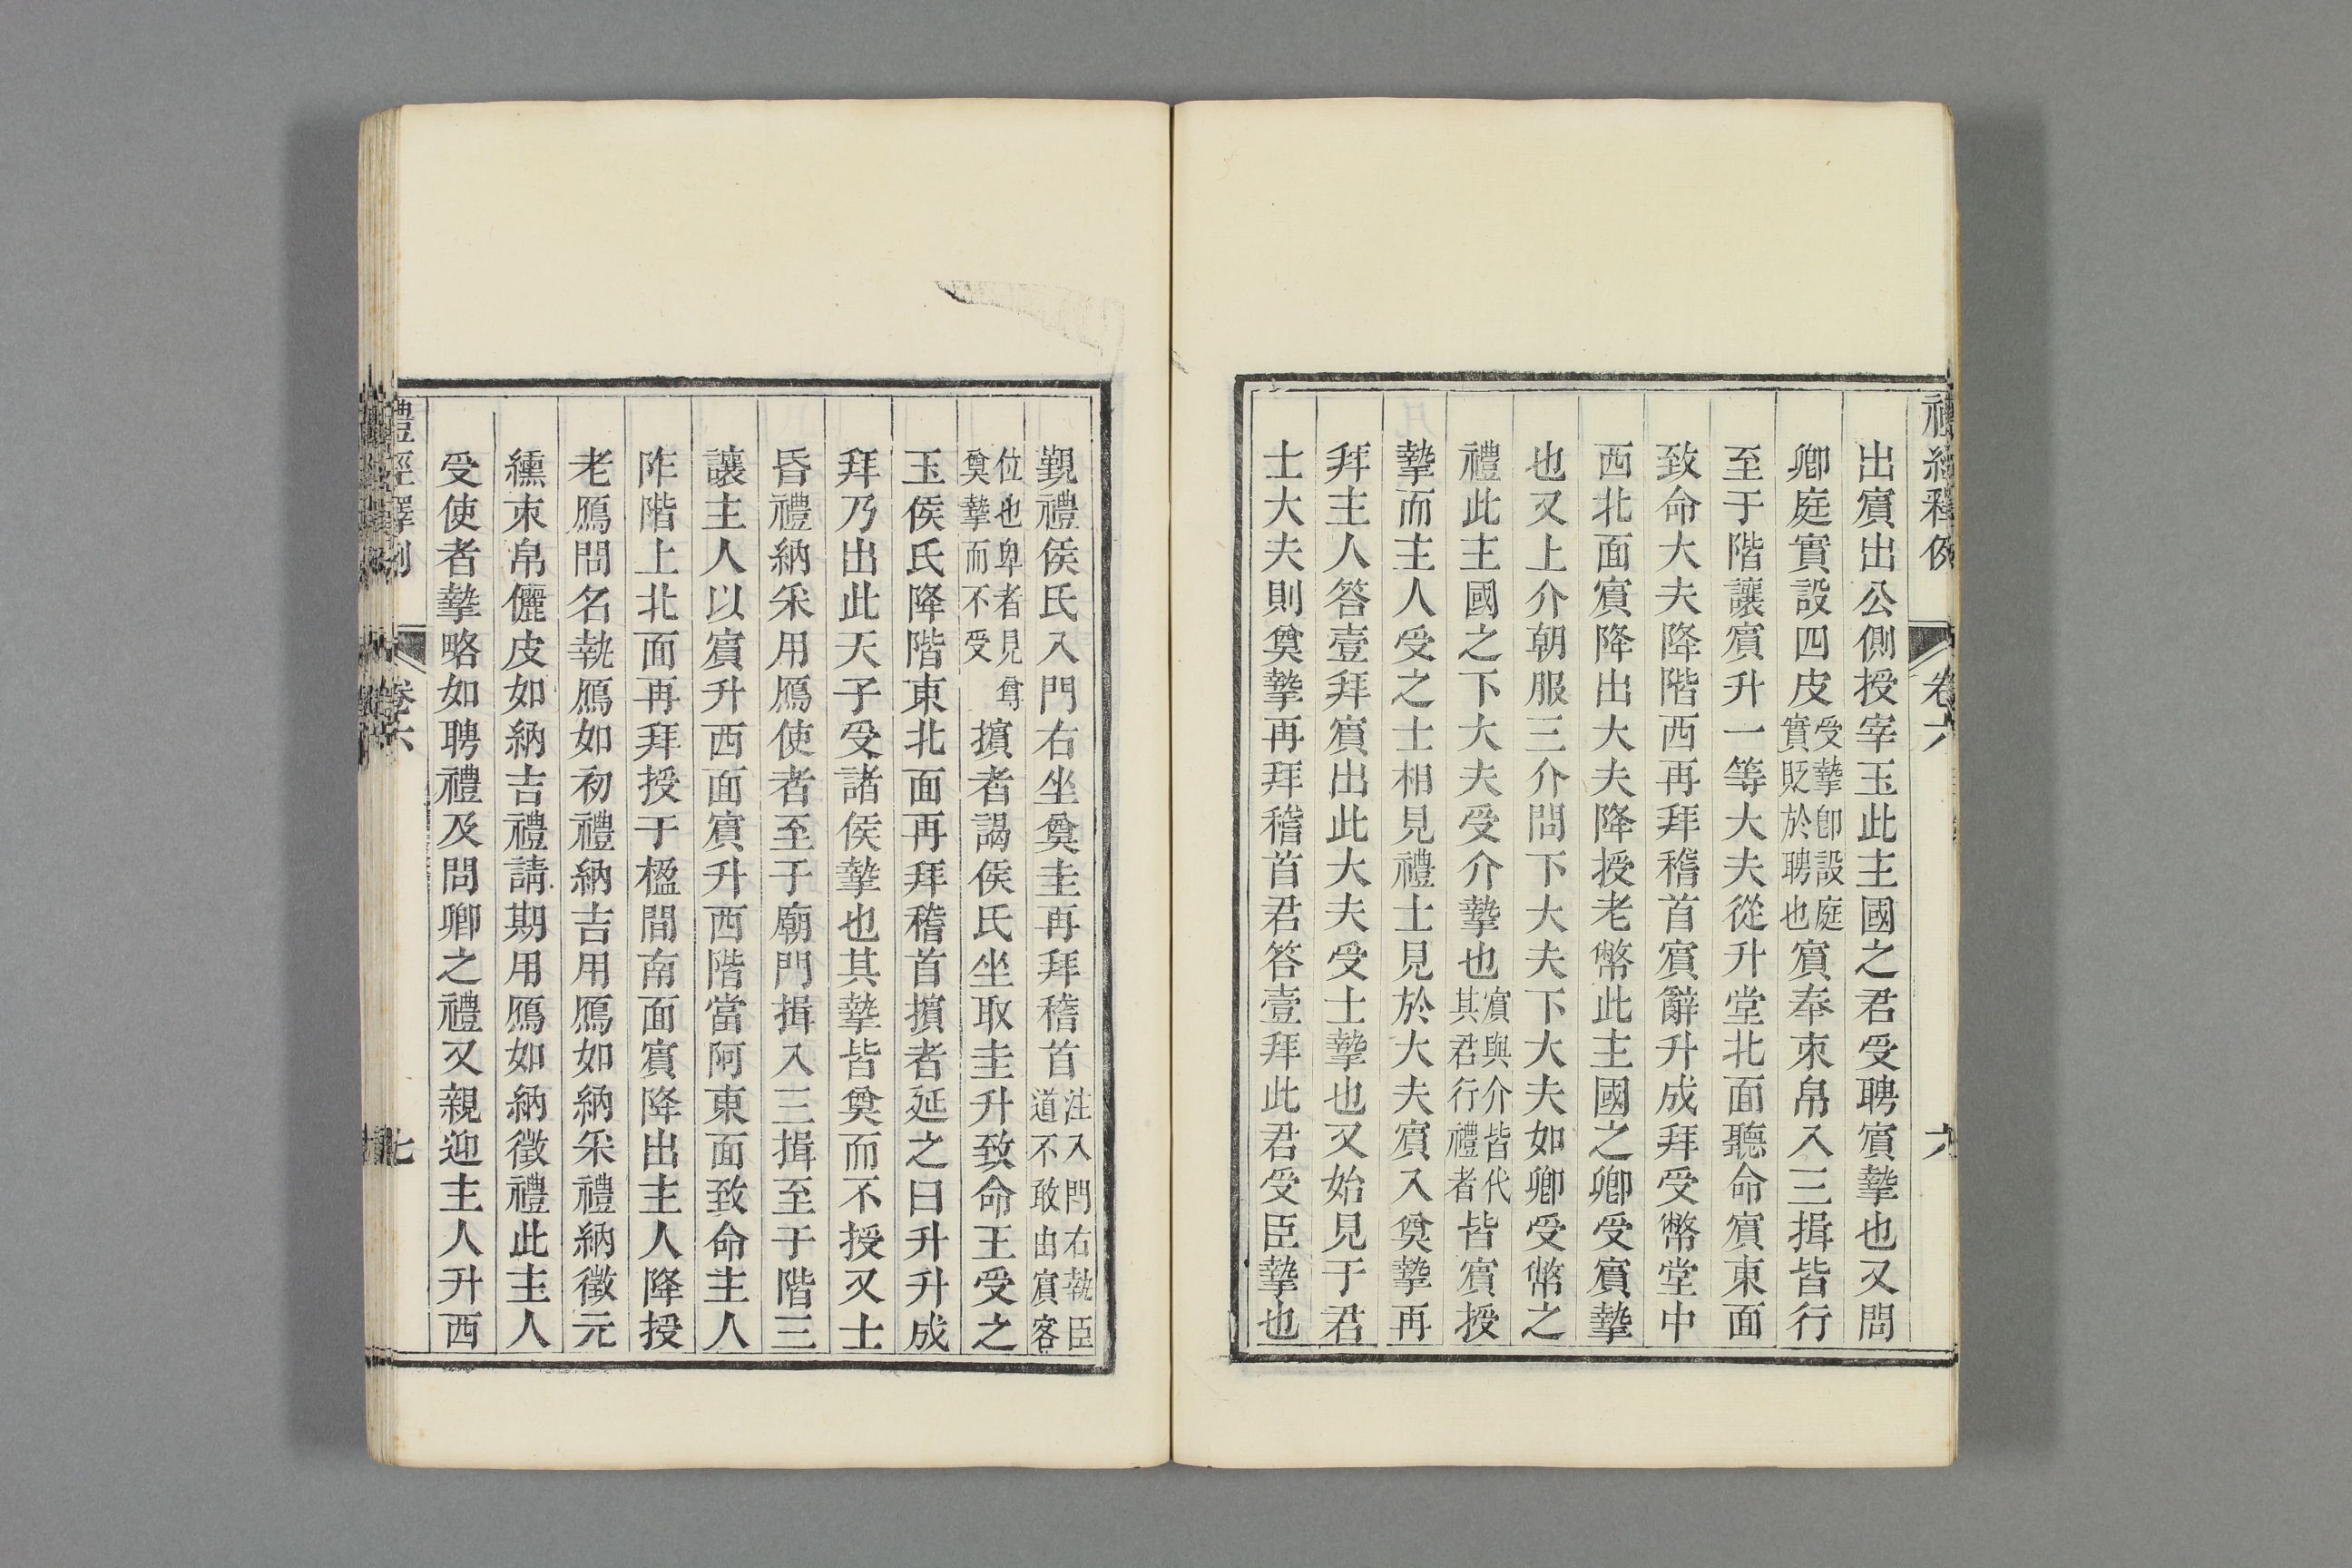 禮經釋例 卷六 六
出賓出公側授宰玉此主國之君受聘賓摯也又問
卿庭實設四皮受摯卽設庭實貶於聘也賓奉束帛入三揖皆行
至于階讓賓升一等大夫從升堂北面聽命賓東面
致命大夫降階西再拜稽首賓辭升成拜受幣堂中
西北面賓降出大夫降授老幣此主國之卿受賓摯
也又上介朝服三介問下大夫下大夫如卿受幣之
禮此主國之下大夫受介摯也賓與介皆代其君行禮者皆賓授
摯而主人受之士相見禮士見於大夫賓入奠摯再
拜主人答壹拜賓出此大夫受士摯也又始見于君
士大夫則奠摯再拜稽首君答壹拜此君受臣摯也
覲禮侯氏入門右坐奠圭再拜稽首注入門右執臣道不敢由賓客
位也卑者見尊奠摯而不受擯者謁侯氏坐取圭升致命王受之
玉侯氏降階東北面再拜稽首擯者延之曰升升成
拜乃出此天子受諸侯摯也其摯皆奠而不授又士
昏禮納采用鴈使者至于廟門揖入三揖至于階三
讓主人以賓升西面賓升西階當阿東面致命主人
阼階上北面再拜授于楹間南面賓降出主人降授
老鴈問名執鴈如初禮納吉用鴈如納采禮納徵元
纁束帛儷皮如納吉禮請期用鴈如納徵禮此主人
受使者摯略如聘禮及問卿之禮又親迎主人升西
禮經釋例 卷六 七